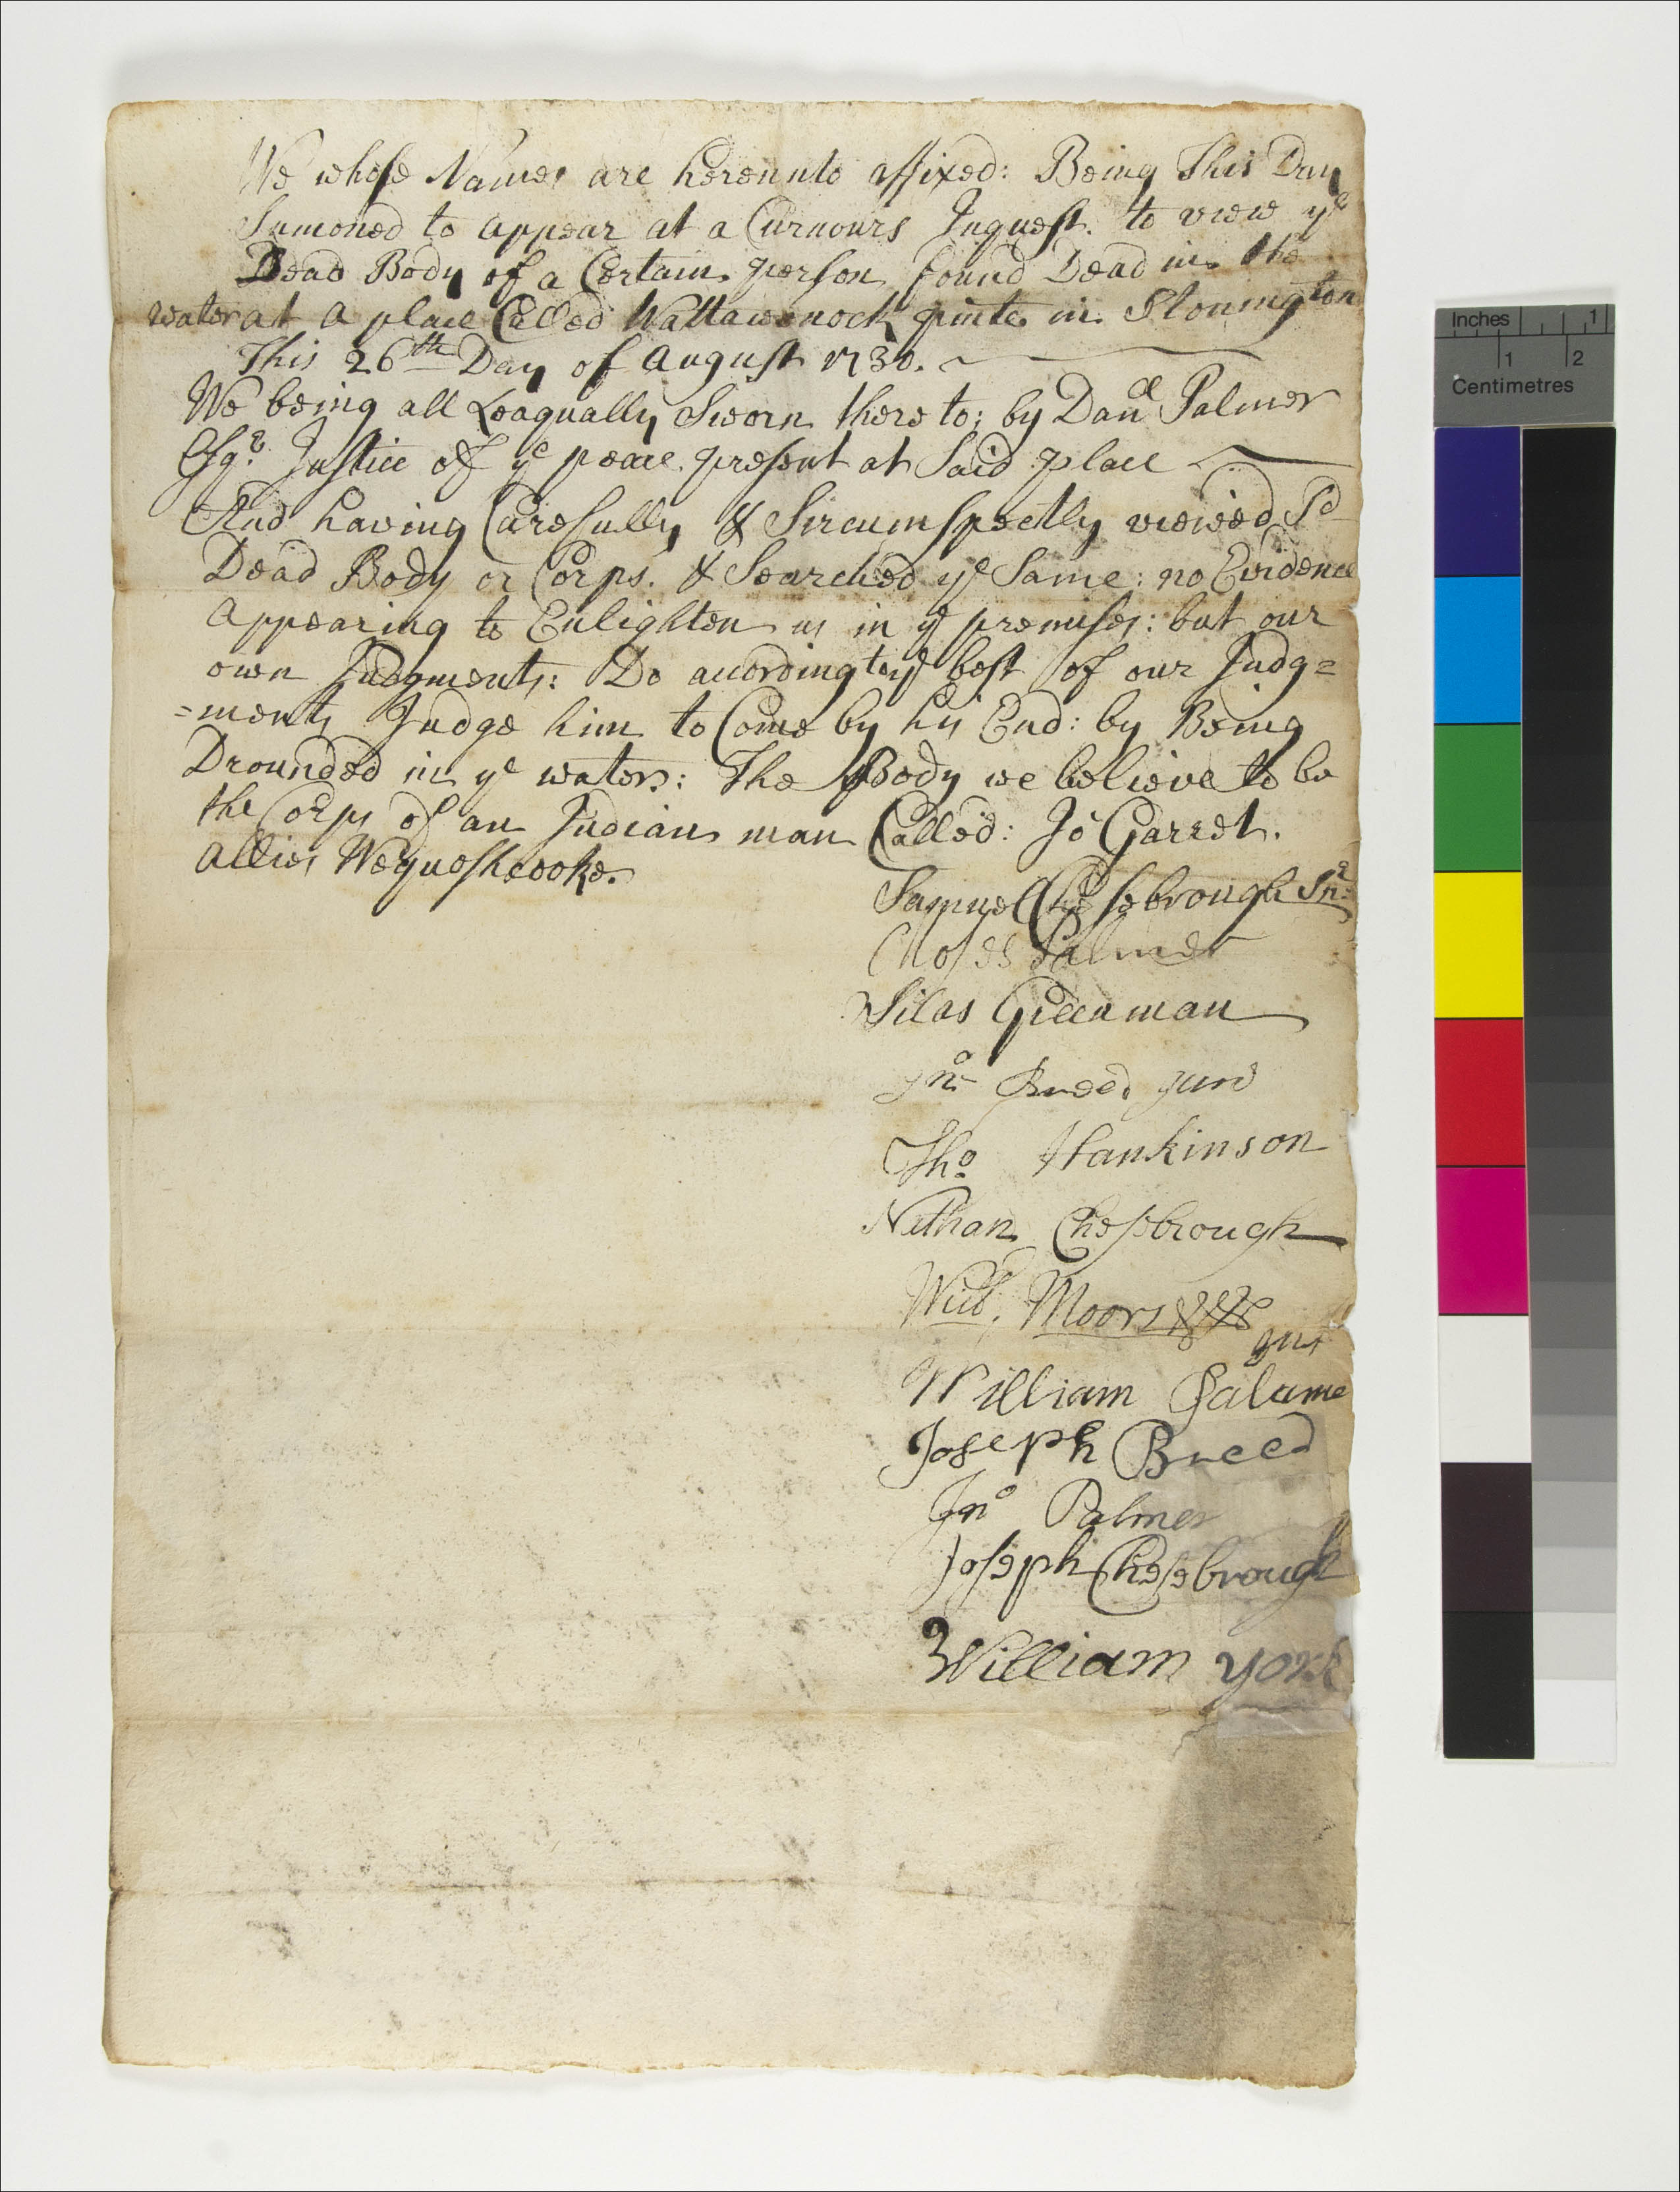 We whose Names are hereunto affixed: Being This Day
Sumoned to appear at a Curnours Inquest. to view ye
Dead Body of a Certain person found Dead in the
water at a place Called Wattawonock pinte in Stonington
This 26th Day of August 1730.
We being all Leagually Sworn there to; by Danll Palmer
Esqr. Justice of ye peace present at Said place
And having Carefully & Sircumspectly viewed Sd
Dead Body or Corps. & Searched ye Same: no Evidence
appearing to Enlighten us in ye premises: but our
own Judgments: Do acording to ye best of our Judg=
=ments Judge him to Come by his End: by Being
Drounded in ye waters: The Body we believe to be
the Corps of an Indian man Called: Jo Garret.
Allies Wequoshcooke.
Samuel Chesebrough Snr
Moses Palmer
Silas Greenman
Jno Breed
Tho Hankinson
Nathan Chesbrough
Moors
jur
William Palame
Joseph Breed
Jno Palmer
Joseph Chesebrough
William York
Inches 1
1 2
Centimetres